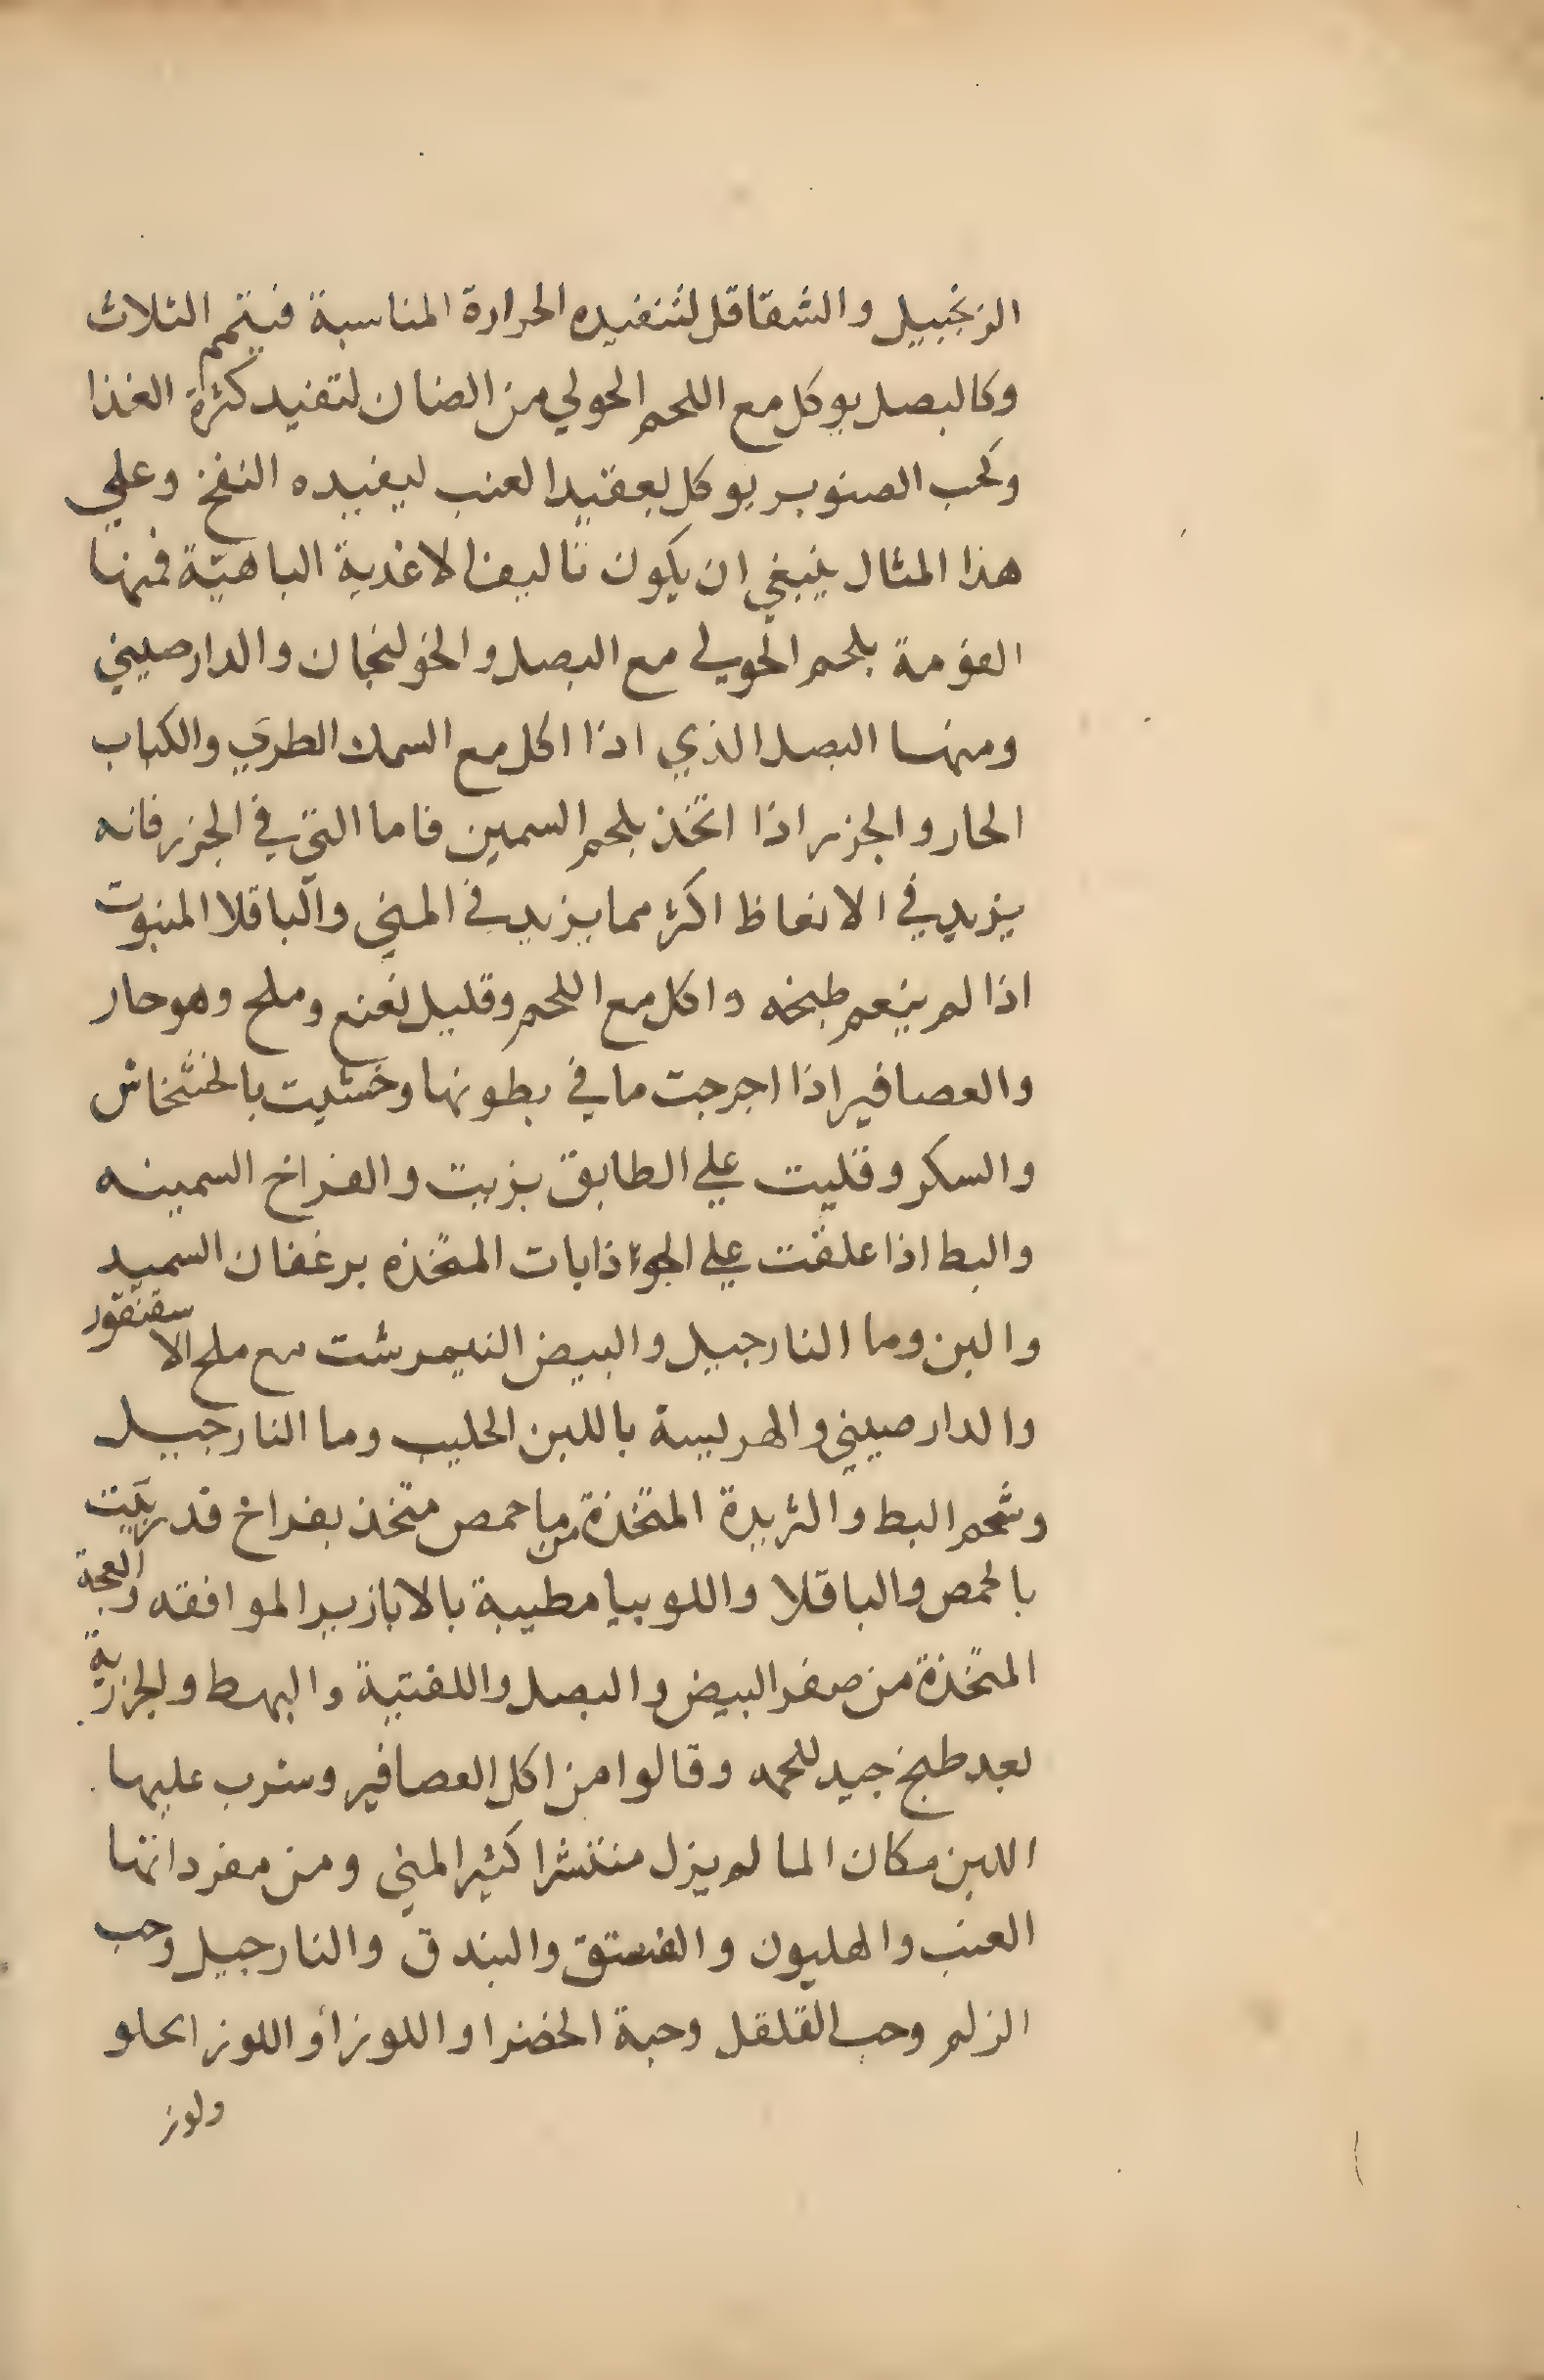 الزنجبيل والشقاقل لتنفيده الحرارة المناسبة فيتمم الثلاث
وكالبصل يوكل مع اللحم الحولي من الضان لتفيد كثرة الغذا
وكحب الصنوبر يوكل بعقيد العنب ليفيده النفخ وعلي
هذا المثال ينبغي ان يكون تاليف الاغدية الباهية فمنها
المؤمة بلحم الحولي مع البصل والخولنجان والدارصيني
ومنها البصل الذي اذا اكل مع السمك الطري والكباب
الحار والجزر اذا اتخذ بلحم السمين فاما التي في الجزر فانه
يزيد في الانعاظ اكثر مما يزيد في المني والباقلا المنبوت
اذا لم ينعم طبخه واكل مع اللحم وقليل نعنع وملح وهو حار
والعصافير اذا اجرجت ما في بطونها وخشيت بالخشخاش
والسكر وقليت علي الطابق بزيت والفراخ السمينه
والبط اذا علقت علي الجواذابات المتخذه برغفان السميد
والبن وما النارجيل والبيض النيمرشت مع ملح الاسقنقور
والدارصيني والهريسة باللبن الحليب وما النارجيل
وشحم البط والثريدة المتخذة من ما حمص متخذ بفراخ قد ربيت
بالحمص والباقلا واللوبيا مطيبة بالابازير الموافقه والعجة
المتخذة من صفر البيض والبصل واللفتية والبهط والجزرية
بعد طبخ جيد للحمه وقالوا من اكل العصافير وشرب عليها
اللبن مكان الما لم يزل منتشرا كثير المني ومن مفرداتها
العنب والهليون والفستق والبندق والنارجيل وحب
الزلم وحب القلقل وحبة الخضرا واللوز أو اللوز الحلو
ولوز